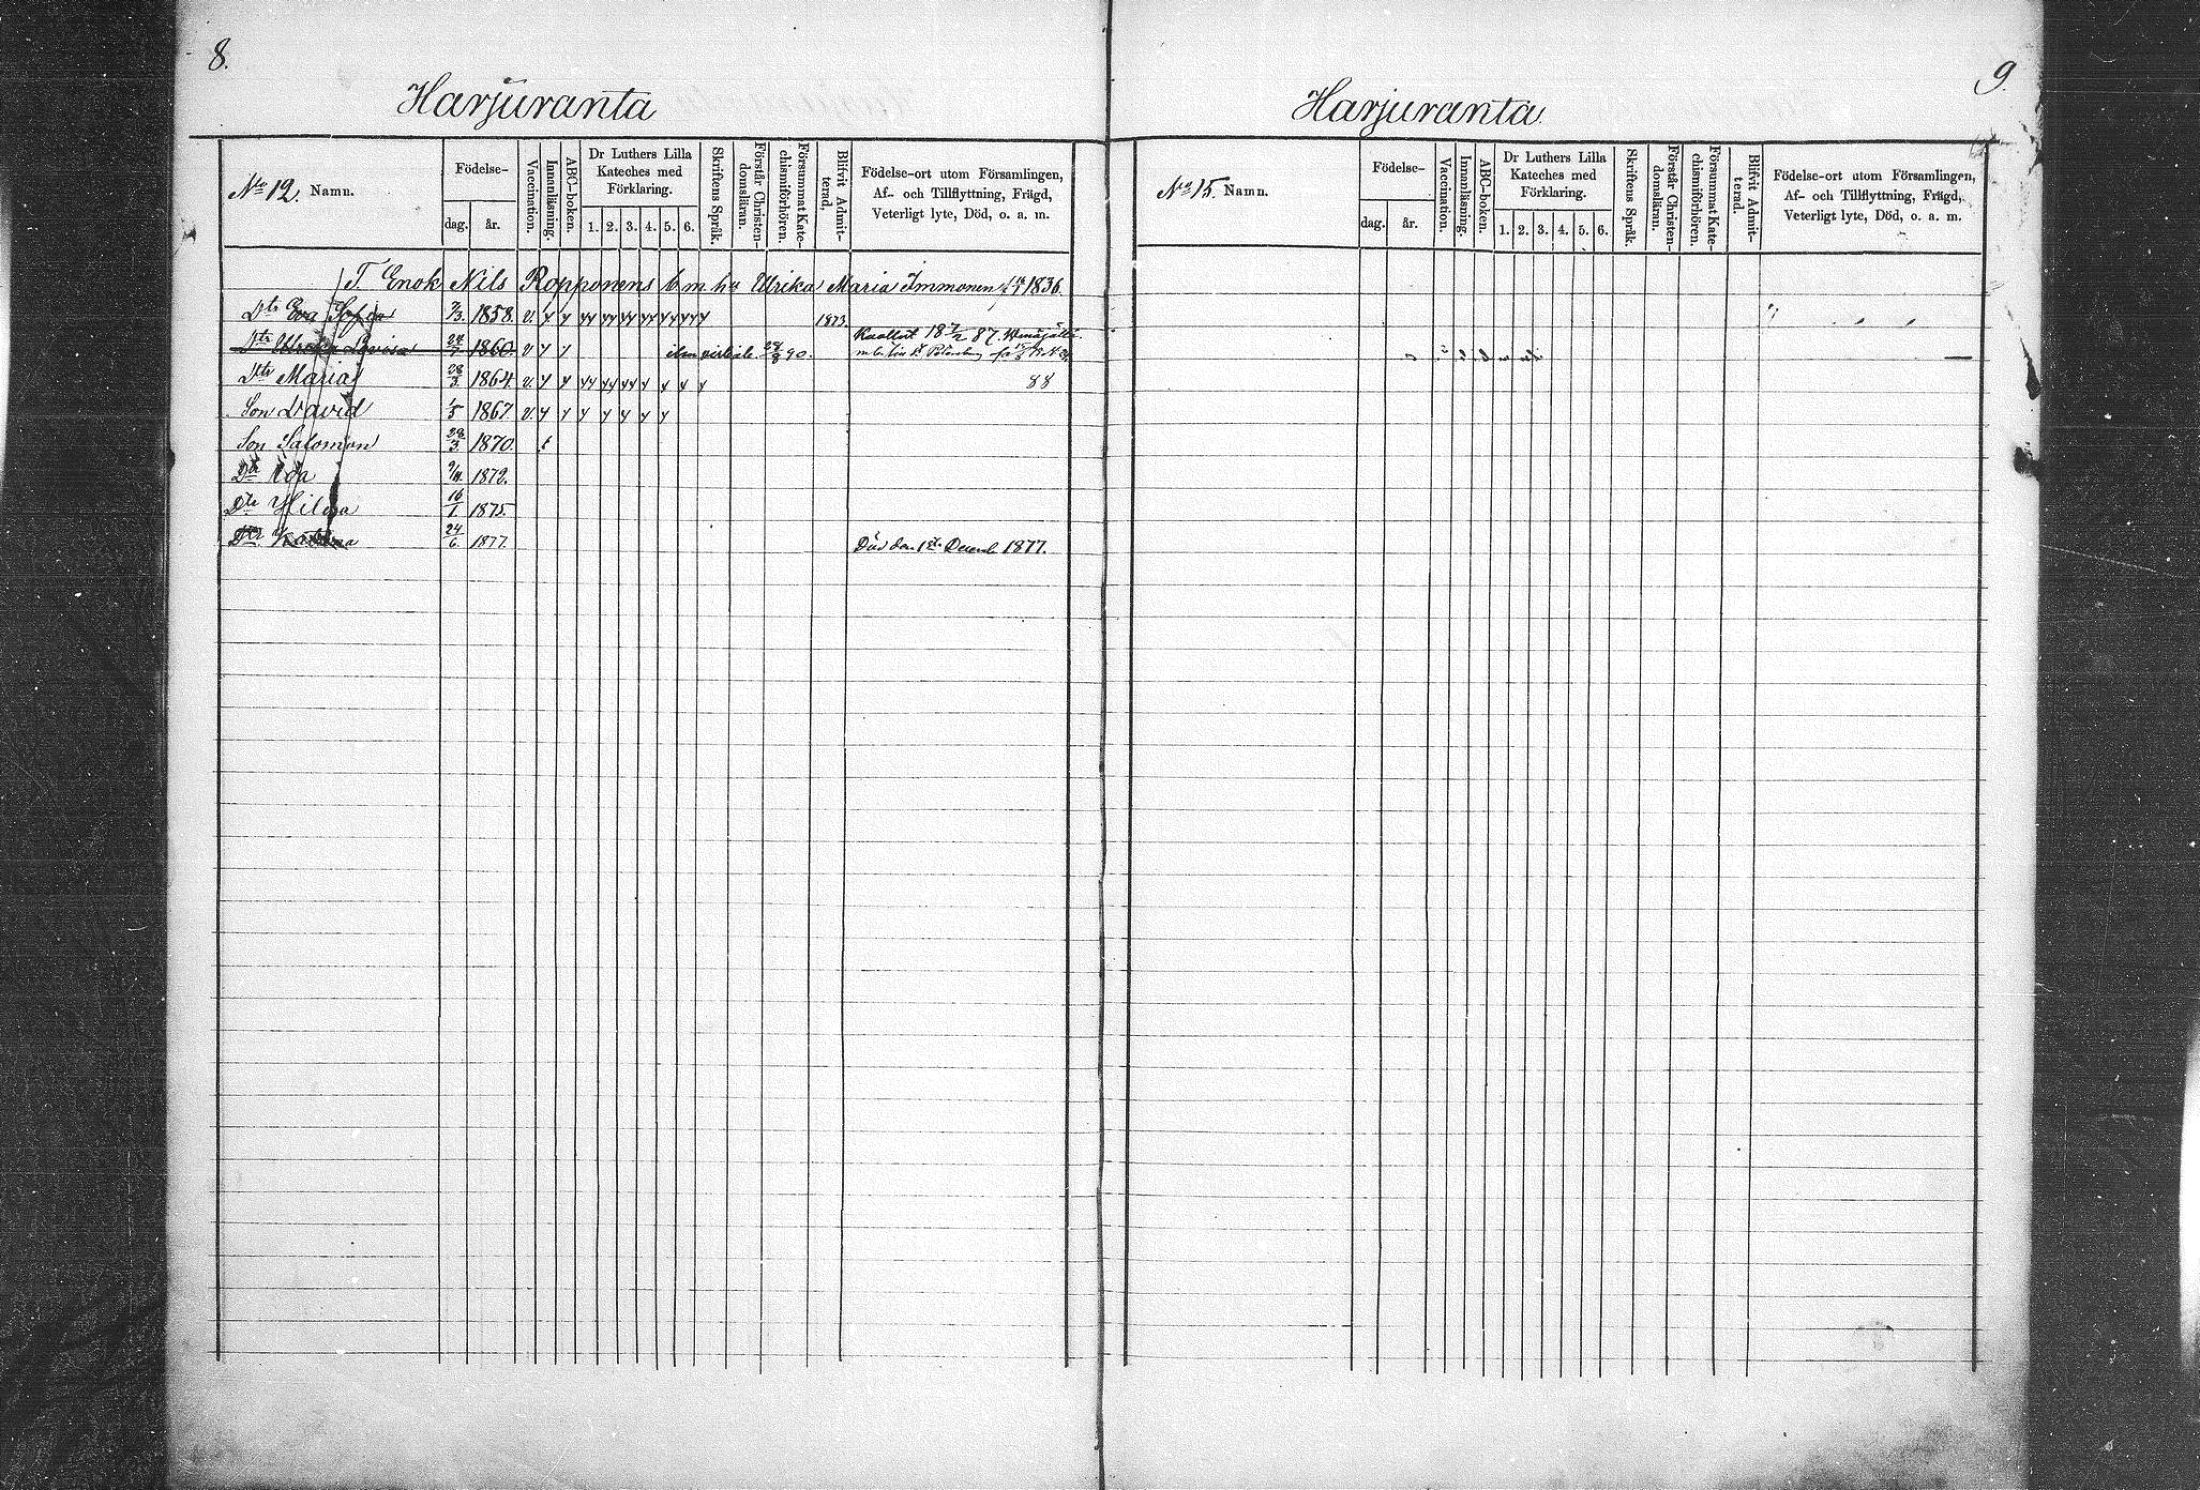 8.
Harjuranta
No 12. Namn.
Födelse-
dag. år.
Vaccination.
Innanläsning.
ABC-boken.
Dr Luthers Lilla
Kateches med
Förklaring.
1. 2. 3. 4. 5. 6.
Skriftens Språk.
Förstår Christen-
domsläran.
Försummat Kate-
chismiförhören.
Blifvit Admit-
terad,
Födelse-ort utom Församlingen,
Af- och Tillflyttning, Frägd,
Veterligt lyte, Död, o. a. m.
T. Enok Nils Ropponens b. m. hu Ulrika Maria Immonen 1836.
Dtr Eva Sofia 1858. v. y y yy yy yy yy yy yy y 1873.
Dtr Ulrika Lovisa 1860. v y y 28/8 90. Kuollut 87.
St Petersburg
Dtr Maria 28/3. 1864. v. y y yy yy yy y y y y 88
Son David 1/5 1867. v. y y y y y y y
Son Salomon 29/3. 1870. t
Dtr Ida 1872.
Dtr Hilda 16/1. 1875.
Dtr Katrina 24/6. 1877. Död den 1sta Decemb 1877.
9.
Harjuranta
No 15. Namn.
Födelse-
dag. år.
Vaccination.
Innanläsning.
ABC-boken.
Dr Luthers Lilla
Kateches med
Förklaring.
1. 2. 3. 4. 5. 6.
Skriftens Språk.
Förstår Christen-
domsläran.
Försummat Kate-
chismiförhören.
Blifvit Admit-
terad.
Födelse-ort utom Församlingen,
Af- och Tillflyttning, Frägd,
Veterligt lyte, Död, o. a. m.